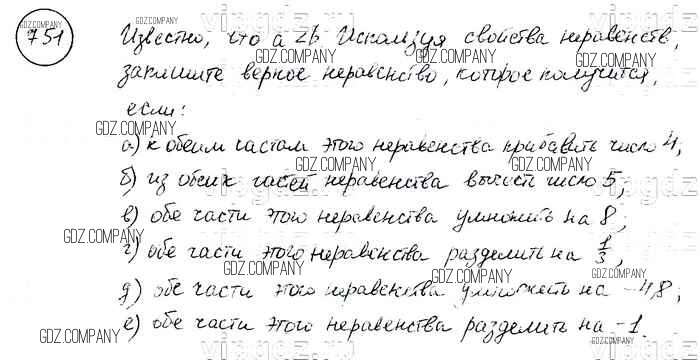 751
Известно, что a < b. Используя свойства неравенств,
запишите верное неравенство, которое получится,
если:
а) к обеим частям этого неравенства прибавить число 4;
б) из обеих частей неравенства вычесть число 5;
в) обе части этого неравенства умножить на 8;
г) обе части этого неравенства разделить на 1/3;
д) обе части этого неравенства умножить на -4,8;
е) обе части этого неравенства разделить на -1.
GDZ.COMPANY
GDZ.COMPANY
GDZ.COMPANY
GDZ.COMPANY
GDZ.COMPANY
GDZ.COMPANY
GDZ.COMPANY
GDZ.COMPANY
GDZ.COMPANY
GDZ.COMPANY
GDZ.COMPANY
GDZ.COMPANY
GDZ.COMPANY
GDZ.COMPANY